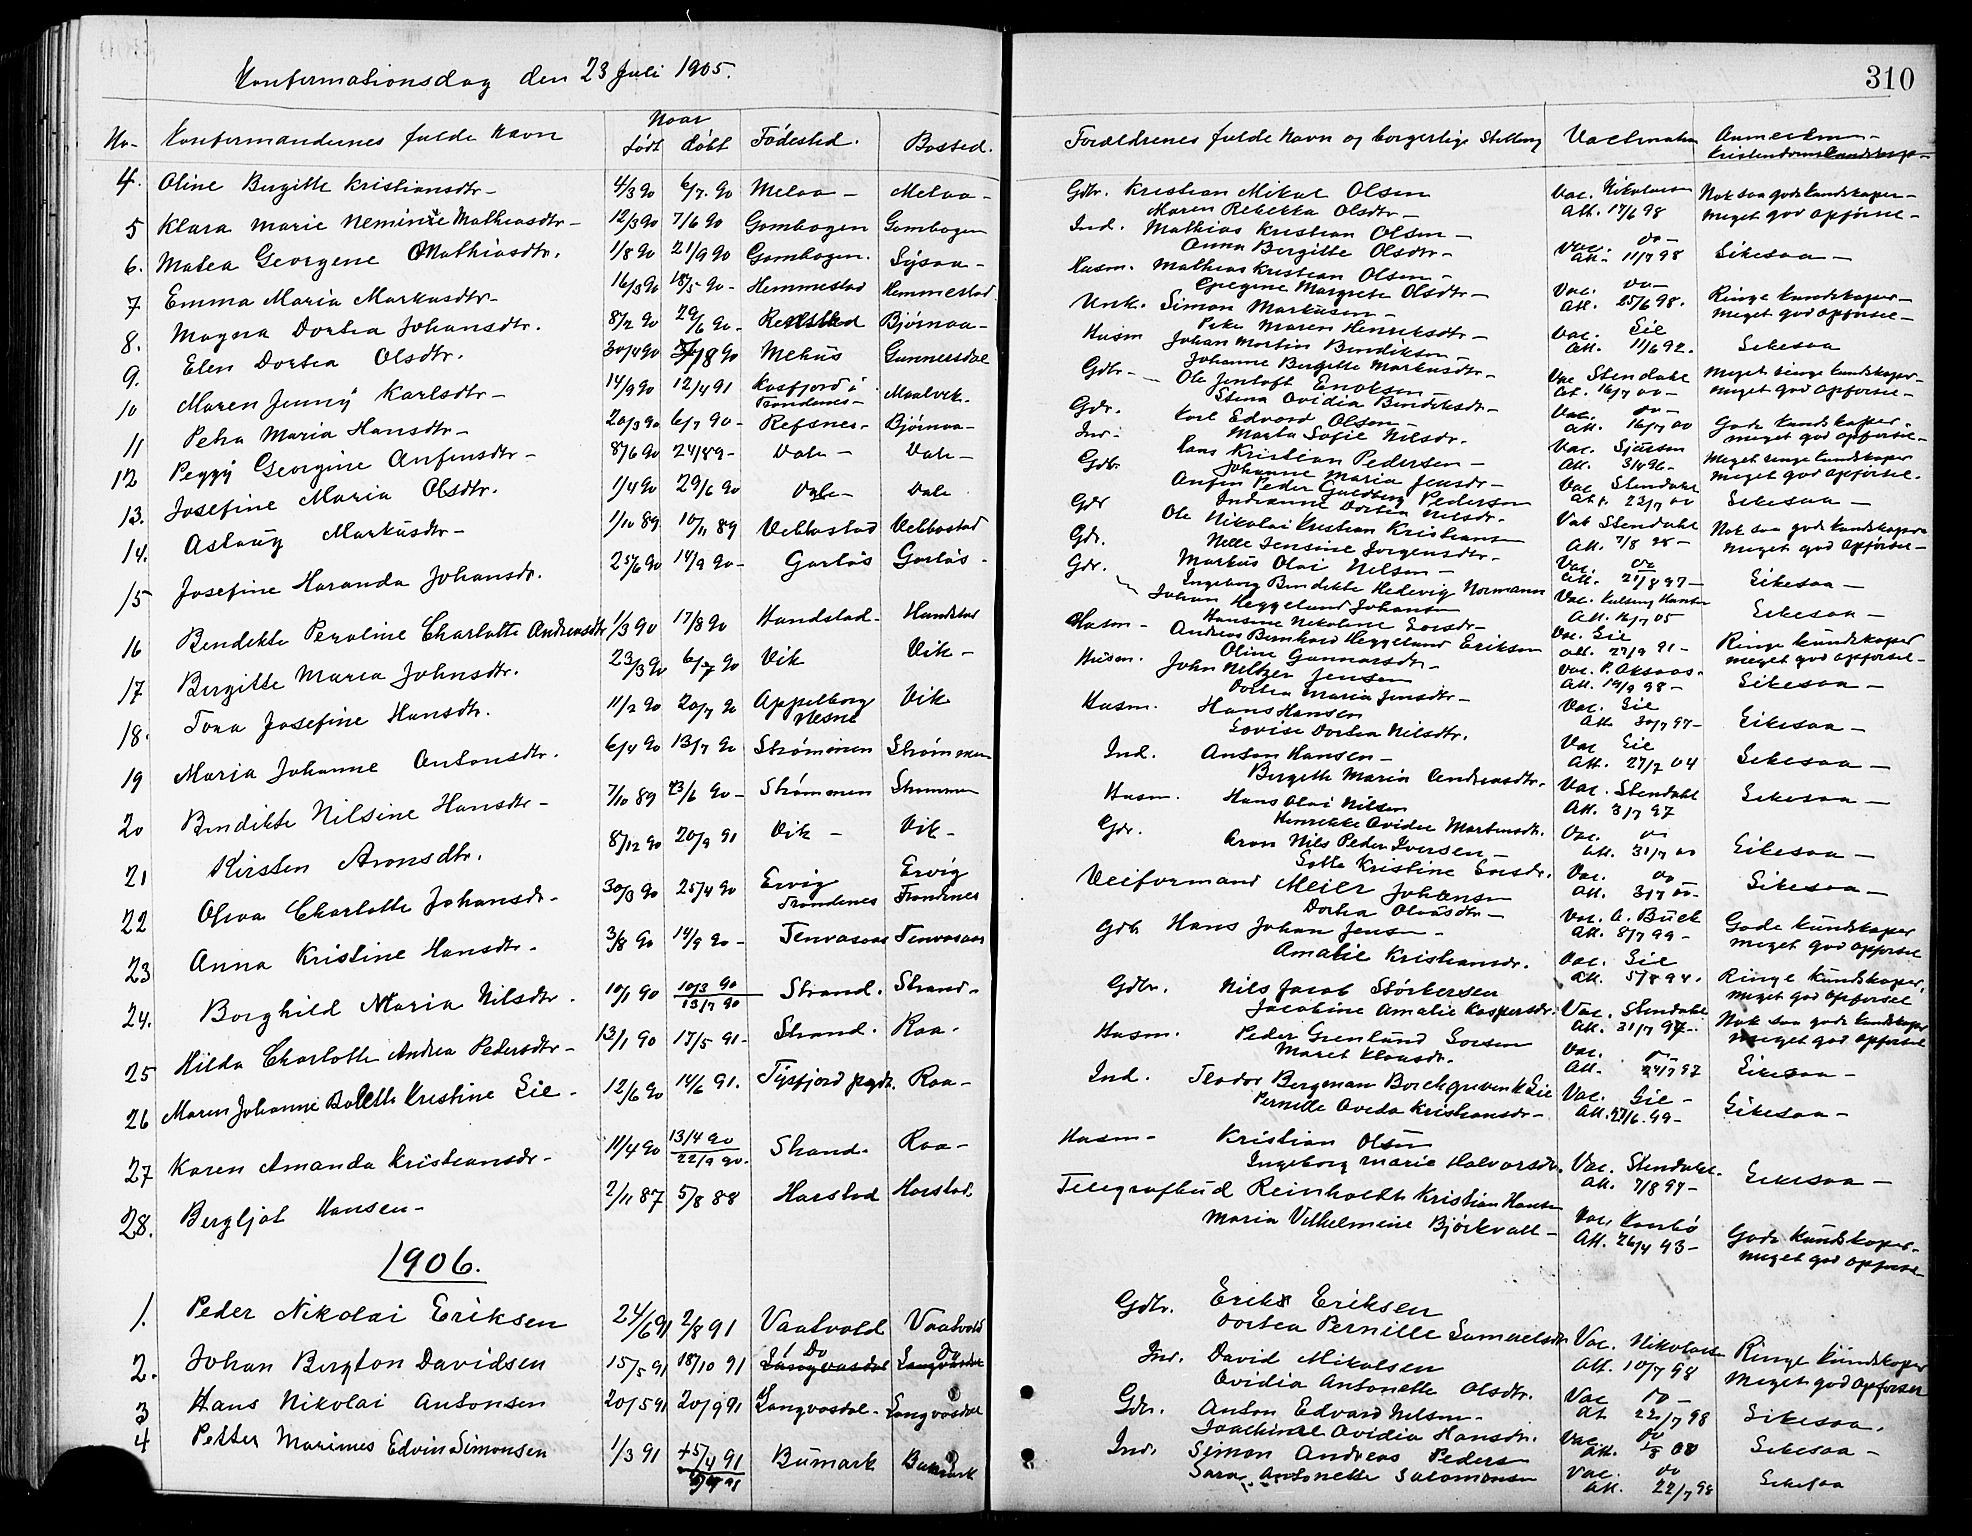 310
Konfirmationsdag den 23 Juli 1905.
No. Konfirmandernes fulde Navn Naar født døbt Fødested. Bosted. Forældrenes fulde Navn og borgerlige Stilling
4. Oline Bergitte Kristiansdtr- 4/3 90 6/7. 90 Meloa- Meloa- Gdbr. Kristian Mikal Olsen Vac. Nikolaisen Nok saa gode kundskaper-
Maren Rebekka Olsdtr- Att. 17/6 98 meget god opførsel-
5 Klara Marie Mathiasdtr- 12/3 90 7/6 90 Gombogen Gombogen Ind. Mathias Kristian Olsen-
Anna Bergitte Olsdtr- Vac. do- Att. 11/7 98 Likesaa-
6. Matea Georgene Mathiasdtr. 1/8 90 21/9 90 Gombogen. Husm. Mathias Kristian Olsen-
Margrete Olsdtr- Vac. do- Att. 25/6 98. Ringe kundskaper-
meget god opførsel-
7 Emma Maria Markusdtr- 16/3 90 18/5 90- Hemmestad Hemmestad Unk. Simon Markusen-
Maren Henriksdtr- Vac. Lie Att. 11/6 92. Likesaa
8. Magna Dortea Johansdtr. 8/2 90 29/6 90- Bjørnaa- Husm Johan Martin Bendiksen-
Johanne Bergitte Markusdtr- Vac Stendahl Att. 16/7 00- Meget ringe kundskaper-
meget god opførsel-
9. Elen Dortea Olsdtr. 30/4 90 Mehus Gunnersdal Gdbr- Ole Jentoft Enoksen
Stina Ovidia Bendiksdr- Vac. do- Att. 16/7 00 Gode kundskaper.
meget god opførsel-
10 Maren Jenny Karlsdtr- 14/9 90 12/4 91 Kasfjord i Trondenes- Maalvik. Gdr. Karl Edvard Olsen-
Marta Sofie Nilsdr. Vac. Att. 3/4 96- Meget ringe kundskaper
meget god opførsel.
11 Petra Maria Hansdtr- 20/3 90 6/7 90- Refsnes- Bjørnaa- Ind- Hans Kristian Pedersen-
Johanne Maria Jensdr- Vac Stendahl Att. 23/7 00 Likesaa-
12 Peggy Georgine Anfensdtr- 8/6 90 24/8 9- Vale- Vale- Gdbr. Anfen Peder Pedersen
Dortea Nilsdr. Vac Stendahl Att. 7/8 98- Nok saa gode kundskaper
meget god opførsel-
13. Josefine Maria Olsdtr. 1/4 90 29/6 90 Vale- Vale Gdr Ole Nikolai Kristian Kristiansen
Jensine Jørgensdtr- Vac. do Att. 21/8 97- Likesaa-
14. Aslaug Markusdtr- 1/10 89 10/11 89 Vebbostad Vebbostad Gdr. Markus Olai Nilsen-
Ingeborg Bendikte Hedevig Normann Vac. Hansen Att. 16/7 05 Likesaa-
15 Josefine Haranda Johansdr. 25/6 90 14/9 90- Garlos Garlos- Gdr. Johan Heggelund Johansen
Hansine Nikoline Larsdr- Vac. Lie Att. 27/9 91- Ringe kundskaper
meget god opførsel-
16 Bendikte Peroline Charlotte Andreasdtr 1/3 90 17/8 90 Handstad- Handstad Husm- Andreas Bernhard Heggelund Eriksen
Oline Gunnarsdtr- Vac. P. Aksaas. Att. 19/9 98- Likesaa-
17 Bergitte Maria Johnsdtr. 23/3 90 6/7 90 Vik Vik- Husm. John Jensen
Dortea Maria Jensdtr- Vac. Lie Att. 30/7 97- Likesaa-
18. Tora Josefine Hansdtr. 11/2 90 20/7 90 Appelborg Nesne Vik Husm. Hans Hansen
Lovise Dortea Nilsdtr. Vac Lie Att. 27/7 04 Likesaa-
19 Maria Johanne Antonsdtr. 6/4 90 13/7 90 Strømmen Strømmen Ind. Anton Hansen-
Bergitte Maria Andreasdtr. Vac. Stendahl Att. 31/7 97 Likesaa-
20 Bendikte Nilsine Hansdtr- 7/10 89 23/6 90- Strømmen Strømmen Husm. Hans Olai Nilsen
Henrikke Ovidie Martinsdtr. Vac. do Att. 31/7 00 Likesaa-
21 Kirsten Aronsdtr. 8/12 90 20/9 91 Vik- Vik- Gdr. Aron Nils Peder Iversen-
Lotta Kristine Vac. do Att. 31/7 00- Likesaa-
22 Charlotte Johansdr- 30/3 90 25/4 90 Ervig Trondenes Ervig Trondenes Veiformand Meier Johansen
Dortea Olausdtr- Vac. A. Buck Att. 8/7 99- Gode kundskaper
meget god opførsel
23 Anna Kristine Hansdtr- 3/8 90 14/9 90- Tenvasaas Tenvasaas Gdb. Hans Johan Jensen-
Amalie Kristiansdr. Vac. Lie Att. 5/8 94. Ringe kundskaper,
meget god opførsel
24. Borghild Maria Nilsdtr. 10/1 90 10/3 90 13/7 90 Strand. Strand- Gdbr. Nils Jacob Størkersen
Jacobine Amalie Kaspersdr. Vac. Stendahl Att. 31/7 97-. Nok saa gode kundskaper
meget god opførsel
25 Hilda Charlotte Andrea Pedersdtr- 13/1 90 17/5 91- Strand. Raa- Husm. Peder Grønlund Larsen
Maret Klausdr. Vac. do- Att. 24/7 97 Likesaa-
26 Maren Johanne Bolette Kristine Lie- 12/6 90 14/6 91. Tysfjord prgd. Raa- Ind. Teodor Bergman Borchgrevenk Lie
Pernille Oveda Kristiansdr- Vac. Lie- Att. 27/6. 99- Likesaa-
27 Karen Amanda Kristiansdr- 11/4 90 13/4 90 22/9 90. Strand- Raa- Husm- Kristian Olsen
Ingeborg Marie Halvorsdr. Vac. Stendahl. Att. 7/8 97- Likesaa-
28. Bergljot Hansen- 2/11 87 5/8 88 Harstad Harstad. Telegrafbud Reinholdt Kristian Hansen
Maria Vilhelmine Bjørkvall- Vac. Kaarbø Att. 26/4 93- Gode kundskaper-
meget god opførsel
1906.
1. Peder Nikolai Eriksen 24/6 91 2/8 91 Vaatvold Vaatvold Gdbr. Erik Eriksen
Dortea Pernille Samuelsdtr. Vac. Nikolaisen Att. 10/7 98 Ringe kundskaper
Meget god opførsel
2. Johan Bergton Davidsen 15/5 91 18/10 91 Do Langvasdal Do Langvasdal Ind. David Mikalsen
Ovidia Antonette Olsdtr. Vac do- Att 22/7 98 Likesaa.
3 Hans Nikolai Antonsen 20/5 91 20/9 91 Langvasdal- Langvasdal Gdr. Anton Edvard Nilsen-
Ovidia Hansdr. Vac. do Att. 00 Likesaa-
4 Petter Marimes Edvin Simonsen 1/3 91 +5/4 91 Bumark Bumark Ind. Simon Andreas Pedersen
Sara Antonette Salomonsen Vac. do Att. 22/7 98 Likesaa